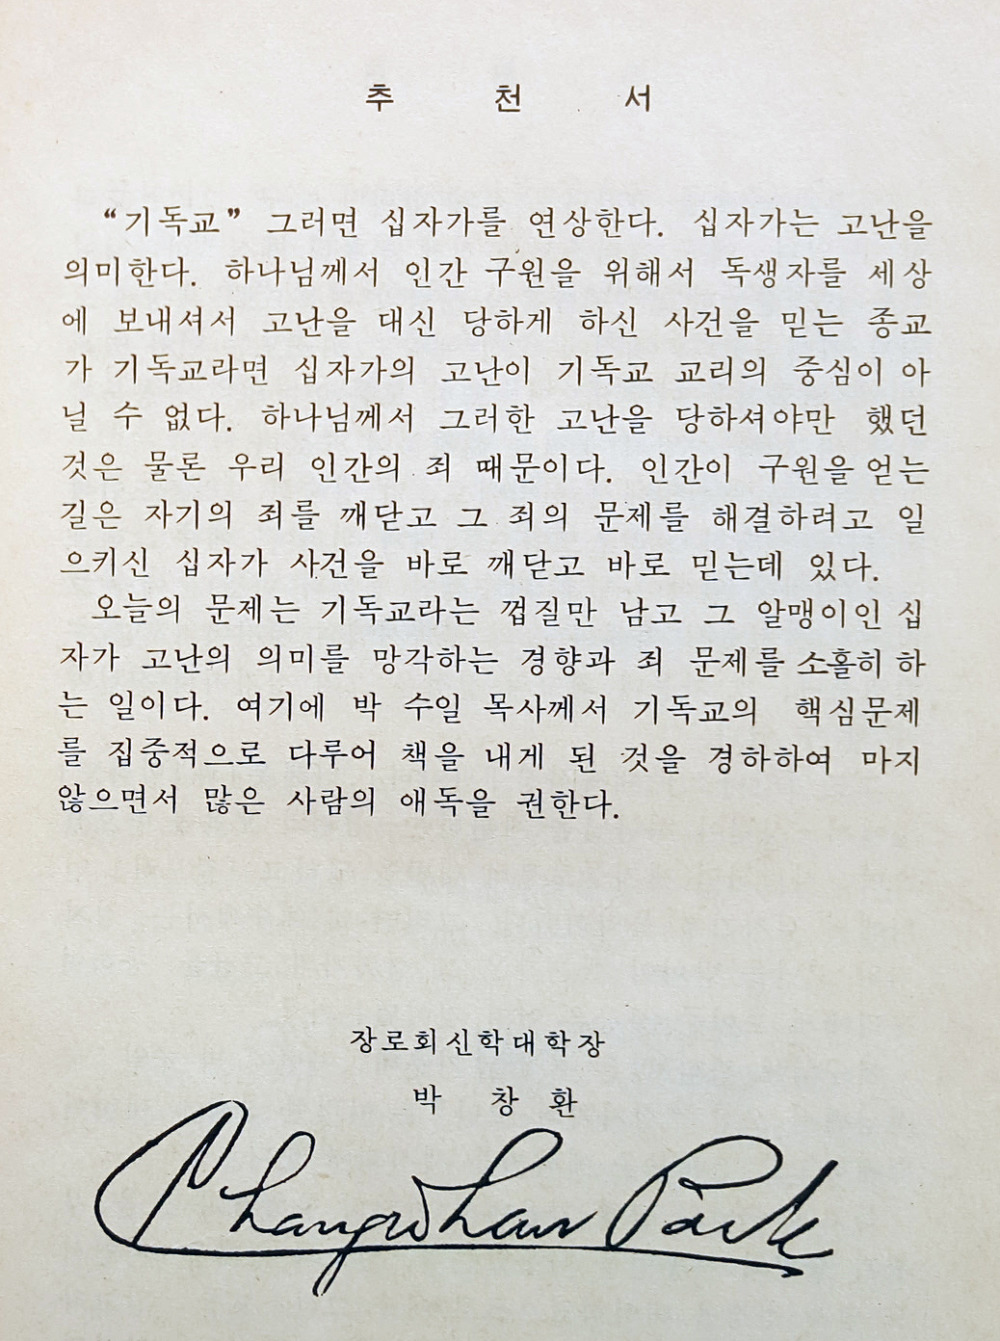 추 천 서
“기독교” 그러면 십자가를 연상한다. 십자가는 고난을
의미한다. 하나님께서 인간 구원을 위해서 독생자를 세상
에 보내셔서 고난을 대신 당하게 하신 사건을 믿는 종교
가 기독교라면 십자가의 고난이 기독교 교리의 중심이 아
닐 수 없다. 하나님께서 그러한 고난을 당하셔야만 했던
것은 물론 우리 인간의 죄 때문이다. 인간이 구원을 얻는
길은 자기의 죄를 깨닫고 그 죄의 문제를 해결하려고 일
으키신 십자가 사건을 바로 깨닫고 바로 믿는데 있다.
오늘의 문제는 기독교라는 껍질만 남고 그 알맹이인 십
자가 고난의 의미를 망각하는 경향과 죄 문제를 소홀히 하
는 일이다. 여기에 박 수일 목사께서 기독교의 핵심문제
를 집중적으로 다루어 책을 내게 된 것을 경하하여 마지
않으면서 많은 사람의 애독을 권한다.
장로회신학대학장
박 창 환
Changwhan Park